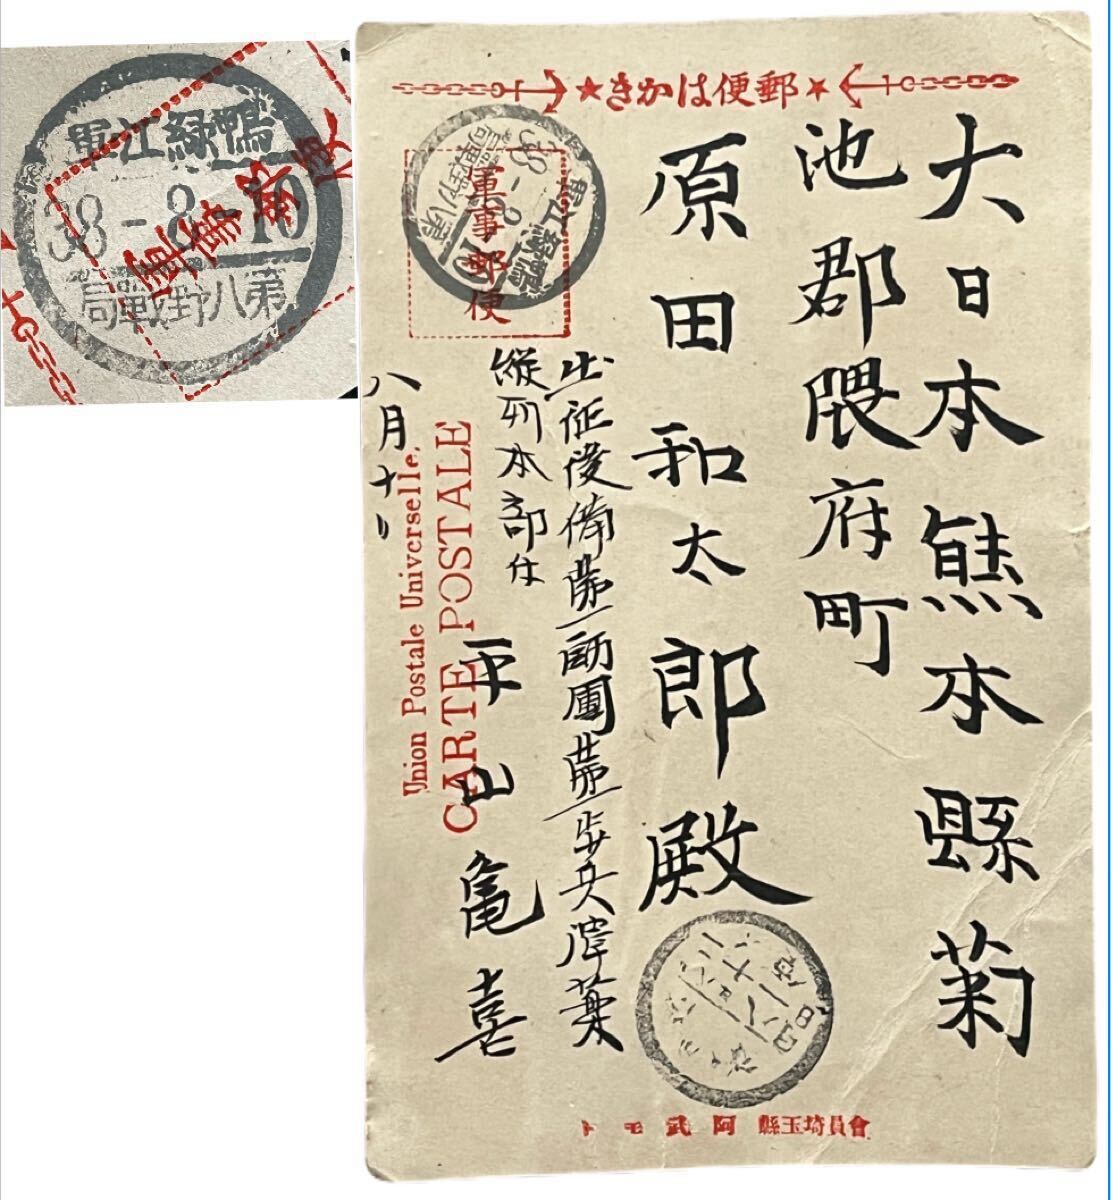 鴨緑江軍
38-8-10
第八野戰局
郵便はかき
軍事郵便
大日本熊本縣菊
池郡隈府町
原田和太郎殿
出征後備第一師團第一歩兵弾薬
縦列本部付
平山亀喜
八月十日
Union Postale Universelle.
CARTE POSTALE
會員埼玉縣 阿武モト